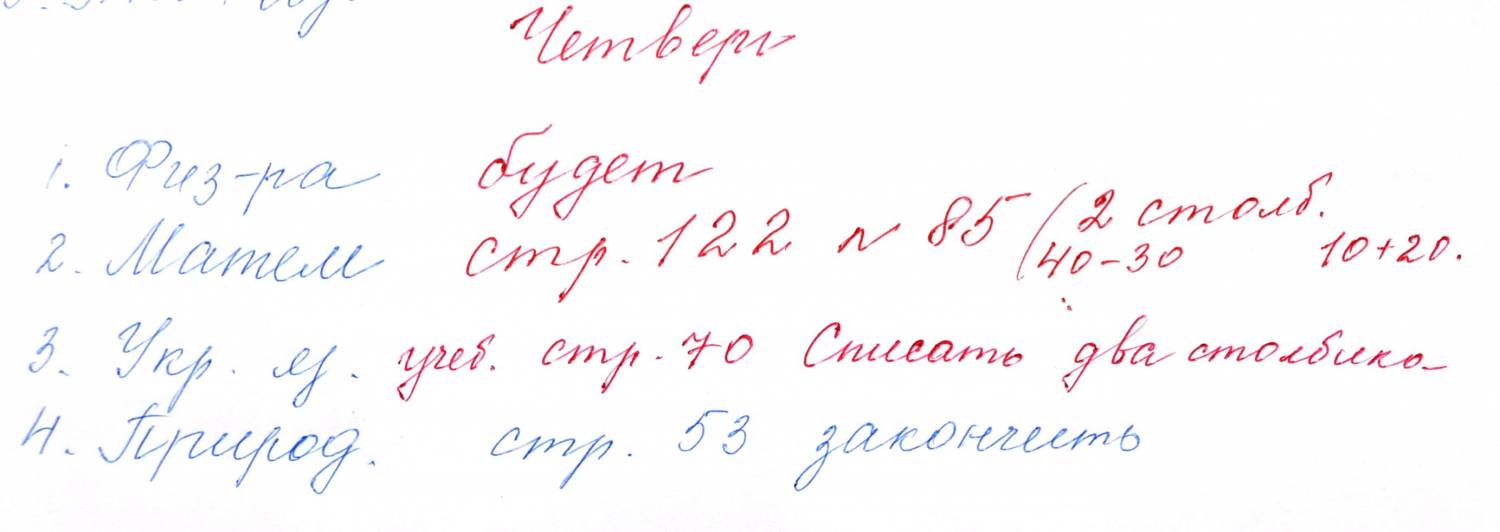 Четверг
1. Физ-ра будет
2. Матем стр. 122 № 85 (2 столб.
40-30 10+20.
3. Укр. яз. учеб. стр. 70 Списать два столбика
4. Природ. стр. 53 закончить